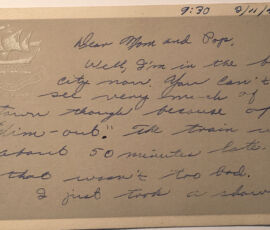 9:30
Dear Mom and Pop,
Well, I'm in the b
city now. You can't
see very much of
town though because of
dim-out." The train w
about 50 minutes late.
that wasn't too bad.
I just took a show